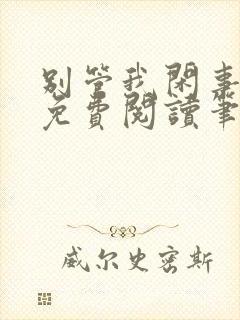 别管我闲事
免費閱讀筆
威尔史密斯